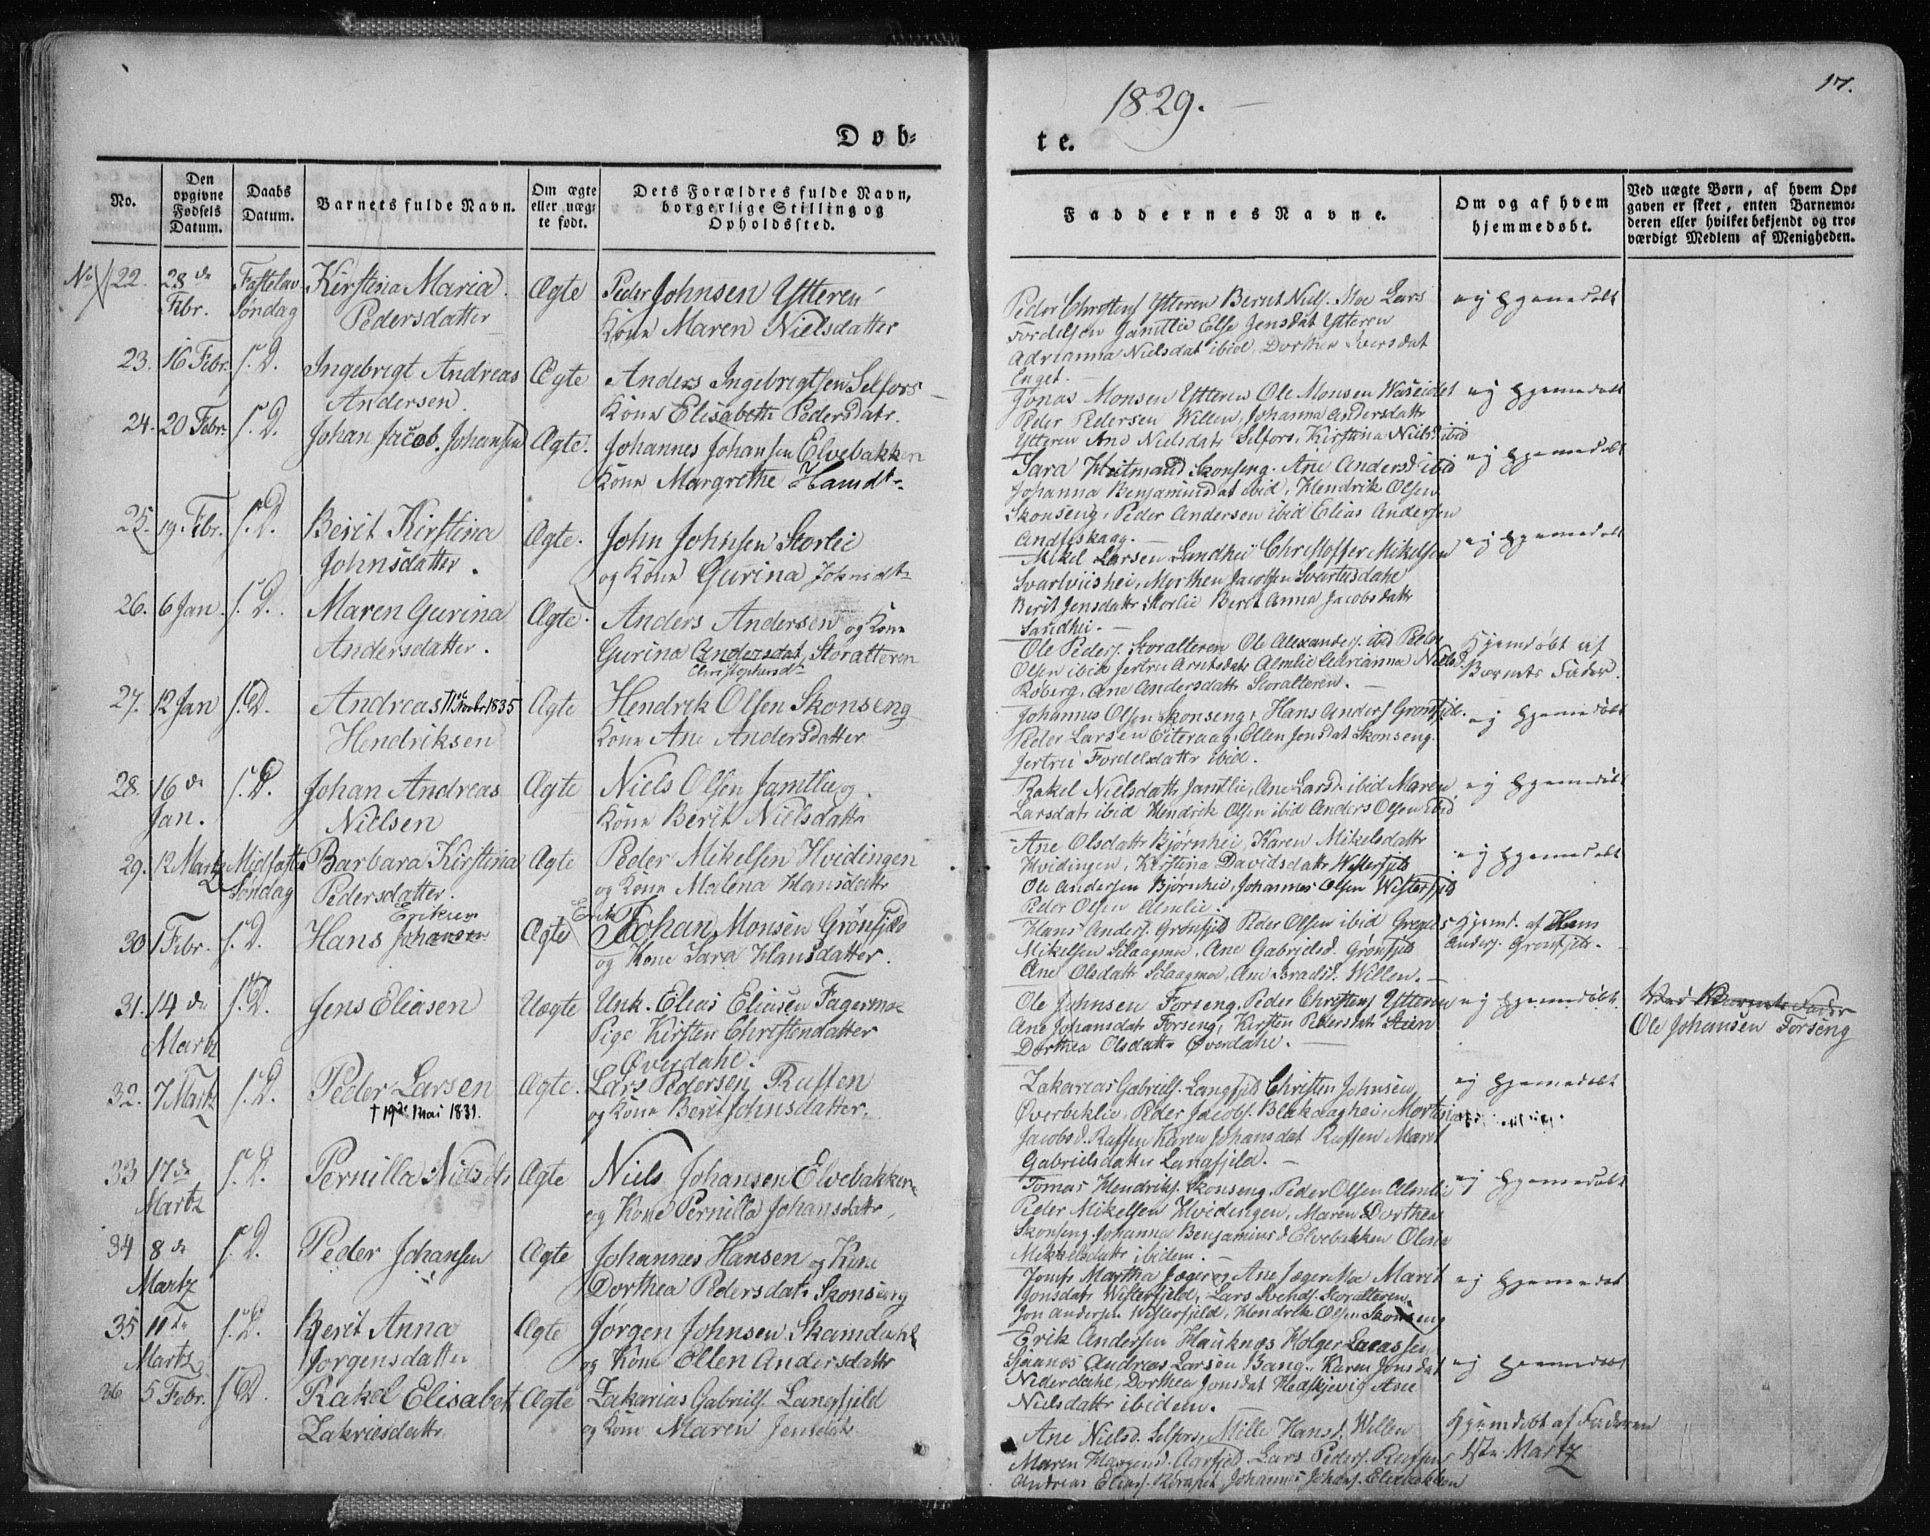 1829.
17.
Døb-
te.
No.
Den opgivne Fødsels Datum.
Daabs Datum.
Barnets fulde Navn.
Om ægte eller uægte født.
Dets Forældres fulde Navn, borgerlige Stilling og Opholdssted.
Faddernes Navne.
Om og af hvem hjemmedøbt.
Ved uægte Børn, af hvem Opgaven er skeet, enten Barnemoderen eller hvilket bekjendt og troværdigt Medlem af Menigheden.
No 22. 28de Febr. Fastelav Søndag Kirstina Maria Pedersdatter Ægte Peder Johnsen Ytteren
Kone Maren Nielsdatter
Peder Christens Ytteren Bernt Niels. Moe Lars
Fordelsen Jamtlie Else Jensdat Ytteren
Adrianna Nielsdat ibid, Dorthea Iversdat
Enget.
ej hjemedøbt
23. 16 Febr. s. D. Ingebrigt Andreas Andersen Ægte Anders Ingebrigtsen Selfors
Kone Elisabeth Pedersdatr.
Jonas Monsen Ytteren Ole Monsen
Peder Pedersen Willen, Johanna Andersdattr
Ytteren Ane Nielsdatr Selfors, Kirstina Nielsd ibid
ej hjemedøbt
24. 20 Febr. s. D. Johan Jacob Johansen Ægte. Johannes Johansen Elvebakken
Kone Margrethe Hansdt
Sara Heitmand Skonseng. Ane Andersd ibid
Johanna Benjaminsdat ibid, Hendrik Olsen
Skonseng, Peder Andersen ibid Elias Andersen
ej hjemedøbt
25. 19. Febr. s. D. Berit Kirstina Johnsdatter. Ægte. John Johnsen Storlie
og Kone Gurina Johnsdt
Mikel Larsen Sandhei Christoffer Mikelsen
Svartviishei, Morthen Jacobsen Svartisdahl
Berit Jensdattr Storlie Berit Anna Jacobsdattr
Sandhei.
ej hjemedøbt
26. 6 Jan s. D. Maren Gurina Andersdatter. Ægte. Anders Andersen og Kone
Gurina Andersdat Storalteren
Christophersd
Ole Peders. Storalteren Ole Alexanders. ibid Peder
Olsen ibid Jertru Arntsdatr Almlie Adrianna Nielsd
Roberg, Ane Andersdattr Storalteren.
Hjemdøbt af
Barnets Fader.
27. 12 Jan s. D. Andreas Hendriksen Ægte Hendrik Olsen Skonseng
Kone Ane Andersdatter
Johannes Olsen Skonseng, Hans Anders Grønfjeld.
Peder Larsen Eiteraag, Ellen Jonsdat Skonseng.
Jertru Fordelsdattr ibid.
ej hjemedøbt
28. 16de Jan. s. D. Johan Andreas Nielsen Ægte Niels Olsen Jamtlie og
Kone Berit Nielsdattr
Rakel Nielsdattr Jamtlie, Ane Larsd. ibid Maren
Larsdatr ibid Hendrik Olsen ibid Anders Olsen ibid
ej hjemedøbt
29. 12 Martz Midfaste Søndag Barbara Kirstina Pedersdatter. Ægte Peder Mikelsen Hvidingen
og Kone Malena Hansdattr
Ane Olsdattr Bjørnhei, Karen Mikelsdattr
Hvidingen, Kirstina Davidsdattr Westerfjeld
Ole Andersen Bjørnhei, Johannes Olsen Westerfjeld
Peder Olsen Almlie.
ej hjemedøbt
30 1 Febr. s. D. Hans Johansen Eriksen Ægte Erik Johan Monsen Grønfjeld
og Kone Sara Hansdatter.
Hans Anders. Grønfjeld Peder Olsen ibid Gregers
Mikelsen Selaagmo, Ane Gabrielsd. Grønfjeld
Ane Olsdattr Selaagmo, Ane Israelsd. Willen.
Hjemd. af Hans
Anders. Grønfjeld.
31. 14de Martz s. D. Jens Eliasen Uægte Unk. Elias Eliasen Fagermo
Pige Kirsten Christensdatter
Øverdahl.
Ole Johnsen Forseng, Peder Christens Ytteren
Ane Johansdat Forseng, Kirsten Pedersdat Stien
Dorthea Olsdattr Øverdahl.
ej hjemedøbt
Ved Barnets Fader
Ole Johansen Forseng
32. 7 Martz s. D. Peder Larsen
† 19de Mai 1831.
Ægte. Lars Pedersen Russen
og Kone Berit Johnsdatter.
Zakarias Gabriels. Langfjeld Christen Johnsen
Øverbeklie, Peder Jacobs. Blakaaghei, Mortina
Jacobsd. Russen Karen Johansdat Russen Marit
Gabrielsdatter Langfjeld.
ej hjemedøbt
33 17de Martz s. D. Pernilla Nielsdtr Ægte Niels Johansen Elvebakken
og Kone Pernilla Johansdattr.
Tomas Hendriks. Skonseng, Peder Olsen Almlie
Peder Mikelsen Hvidingen, Maren Dorthea
Skonseng, Johanna Benjaminsd Elvebakken Olina
Mikkelsdattr ibidem.
ej hjemedøbt
34 8de Martz s. D. Peder Johansen Ægte Johannes Hansen og Kone
Dorthea Pedersdatr Skonseng
Jomfr Martha Jæger og Ane Jæger Moe Marit
Jonsdatr Westerfjeld, Lars Svends. Storalteren
Jon Andersen Westerfjeld, Hendrik Olsen Skonseng
ej hjemedøbt
35 11te Martz s. D. Berit Anna Jorgensdatter Ægte Jørgen Johnsen Skamdahl
og Kone Ellen Andersdattr
Erik Andersen Hauknæs Holger Lucassen
Sjaanæs Andreas Larsen Bang, Karen Jonsdat
Nederdahl, Dorthea Jonsdat Hedskjevig Ane
Nielsdattr ibidem.
ej hjemedøbt
36 5 Febr. s. D. Rakel Elisabet Zakriesdattr Ægte Zakarias Gabriels. Langfjeld
og Kone Maren Jensdatr
Ane Nielsd. Selfors, Mille Hans. Willen
Maren Haagensd. Aasfjeld, Lars Peders. Russen
Andreas Elias. Johannes Johans. Elvebakken
Hjemdøbt af Faderen
18te Martz